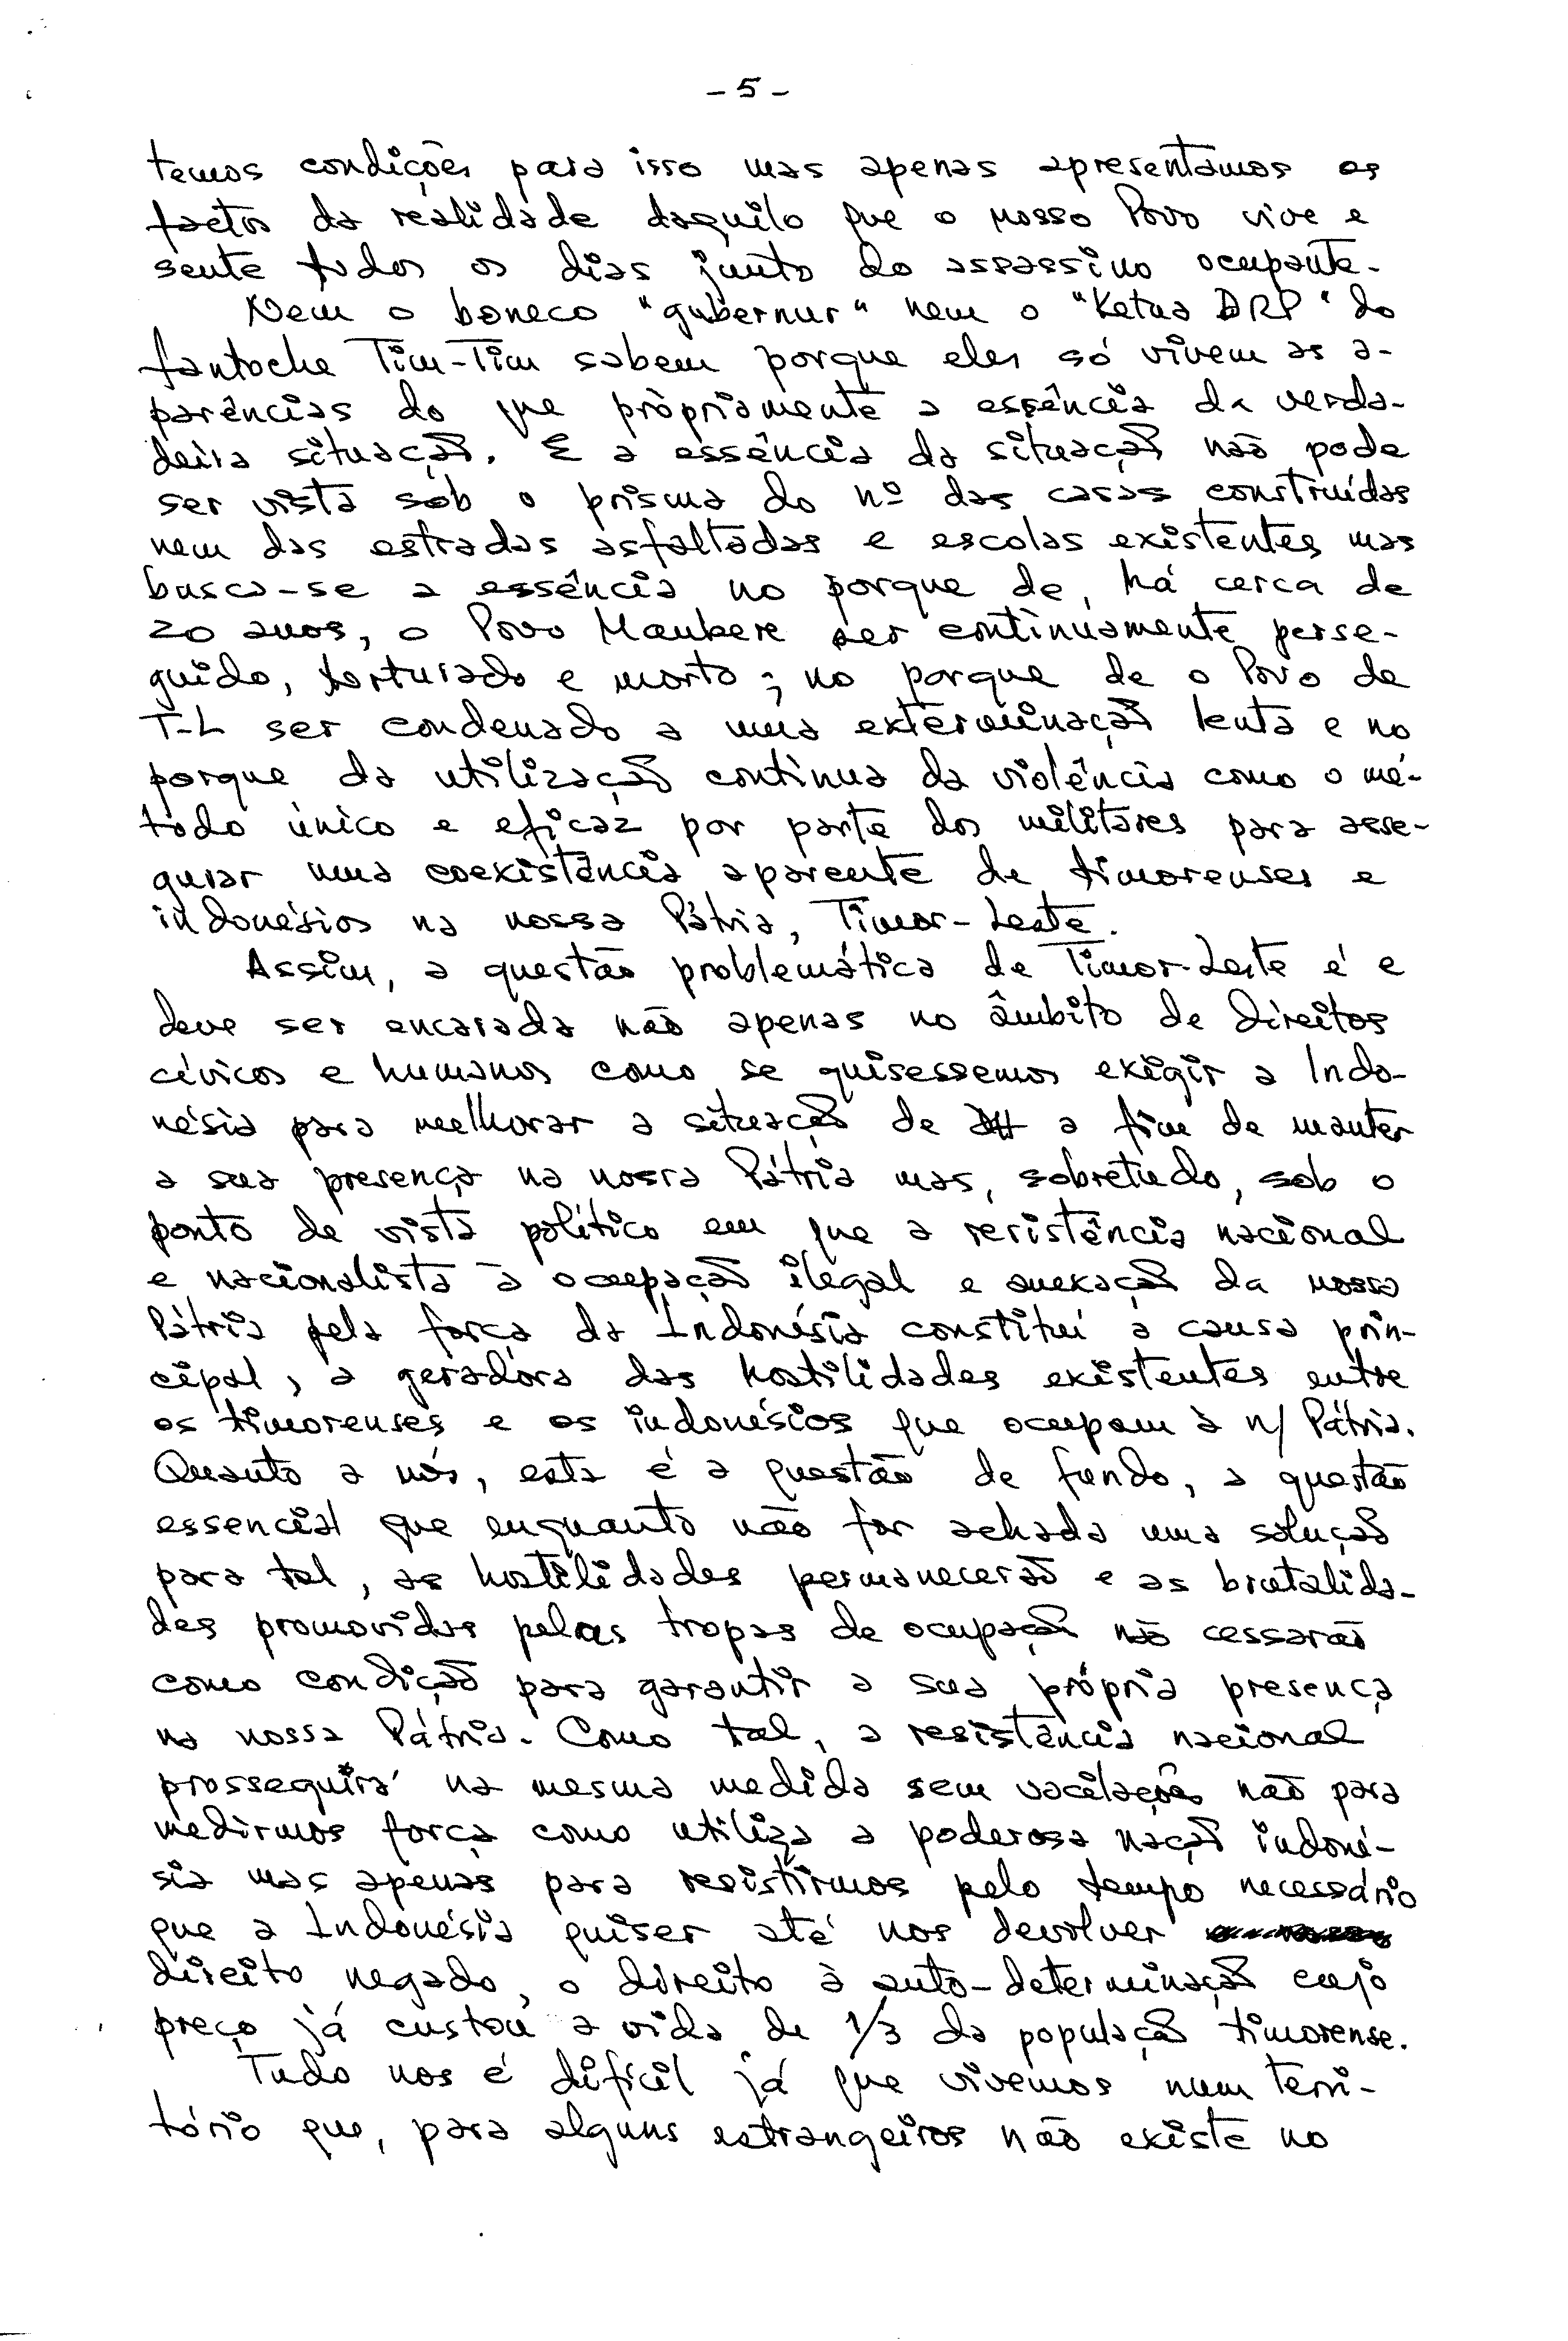 - 5 -
temos condições para isso mas apenas apresentamos os
factos da realidade daquilo que o nosso Povo vive e
sente todos os dias junto do assassino ocupante.
Nem o boneco "gubernur" nem o "Ketua DRP" do
fantoche Tim-Tim sabem porque eles só vivem as a-
parências do que pròpriamente a essência da verda-
deira situação. E a essência da situação não pode
ser vista sob o prisma do nº das casas construídas
nem das estradas asfaltadas e escolas existentes mas
busca-se a essência no porque de, há cerca de
20 anos, o Povo Maubere ser continuamente perse-
guido, torturado e morto; no porque de o Povo de
T-L ser condenado a uma exterminação lenta e no
porque da utilização contínua da violência como o mé-
todo único e eficaz por parte dos militares para asse-
gurar uma coexistência aparente de timorenses e
indonésios na nossa Pátria, Timor-Leste.
Assim, a questão problemática de Timor-Leste é e
deve ser encarada não apenas no âmbito de direitos
cívicos e humanos como se quisessemos exigir a Indo-
nésia para melhorar a situação de DH a fim de manter
a sua presença na nossa Pátria mas, sobretudo, sob o
ponto de vista político em que a resistência nacional
e nacionalista à ocupação ilegal e anexação da nossa
Pátria pela força da Indonésia constitui a causa prin-
cipal, a geradora das hostilidades existentes entre
os timorenses e os indonésios que ocupam à n/ Pátria.
Quanto a nós, esta é a questão de fundo, a questão
essencial que enquanto não for achada uma solução
para tal, as hostilidades permanecerão e as brutalida-
des promovidas pelas tropas de ocupação não cessarão
como condição para garantir a sua própria presença
na nossa Pátria. Como tal, a resistência nacional
prosseguirá na mesma medida sem vacilações não para
medirmos força como utiliza a poderosa nação indoné-
sia mas apenas para resistirmos pelo tempo necessário
que a Indonésia quiser até nos devolver
direito negado, o direito à auto-determinação cujo
preço já custou a vida de 1/3 da população timorense.
Tudo nos é difícil já que vivemos num terri-
tório que, para alguns estrangeiros não existe no